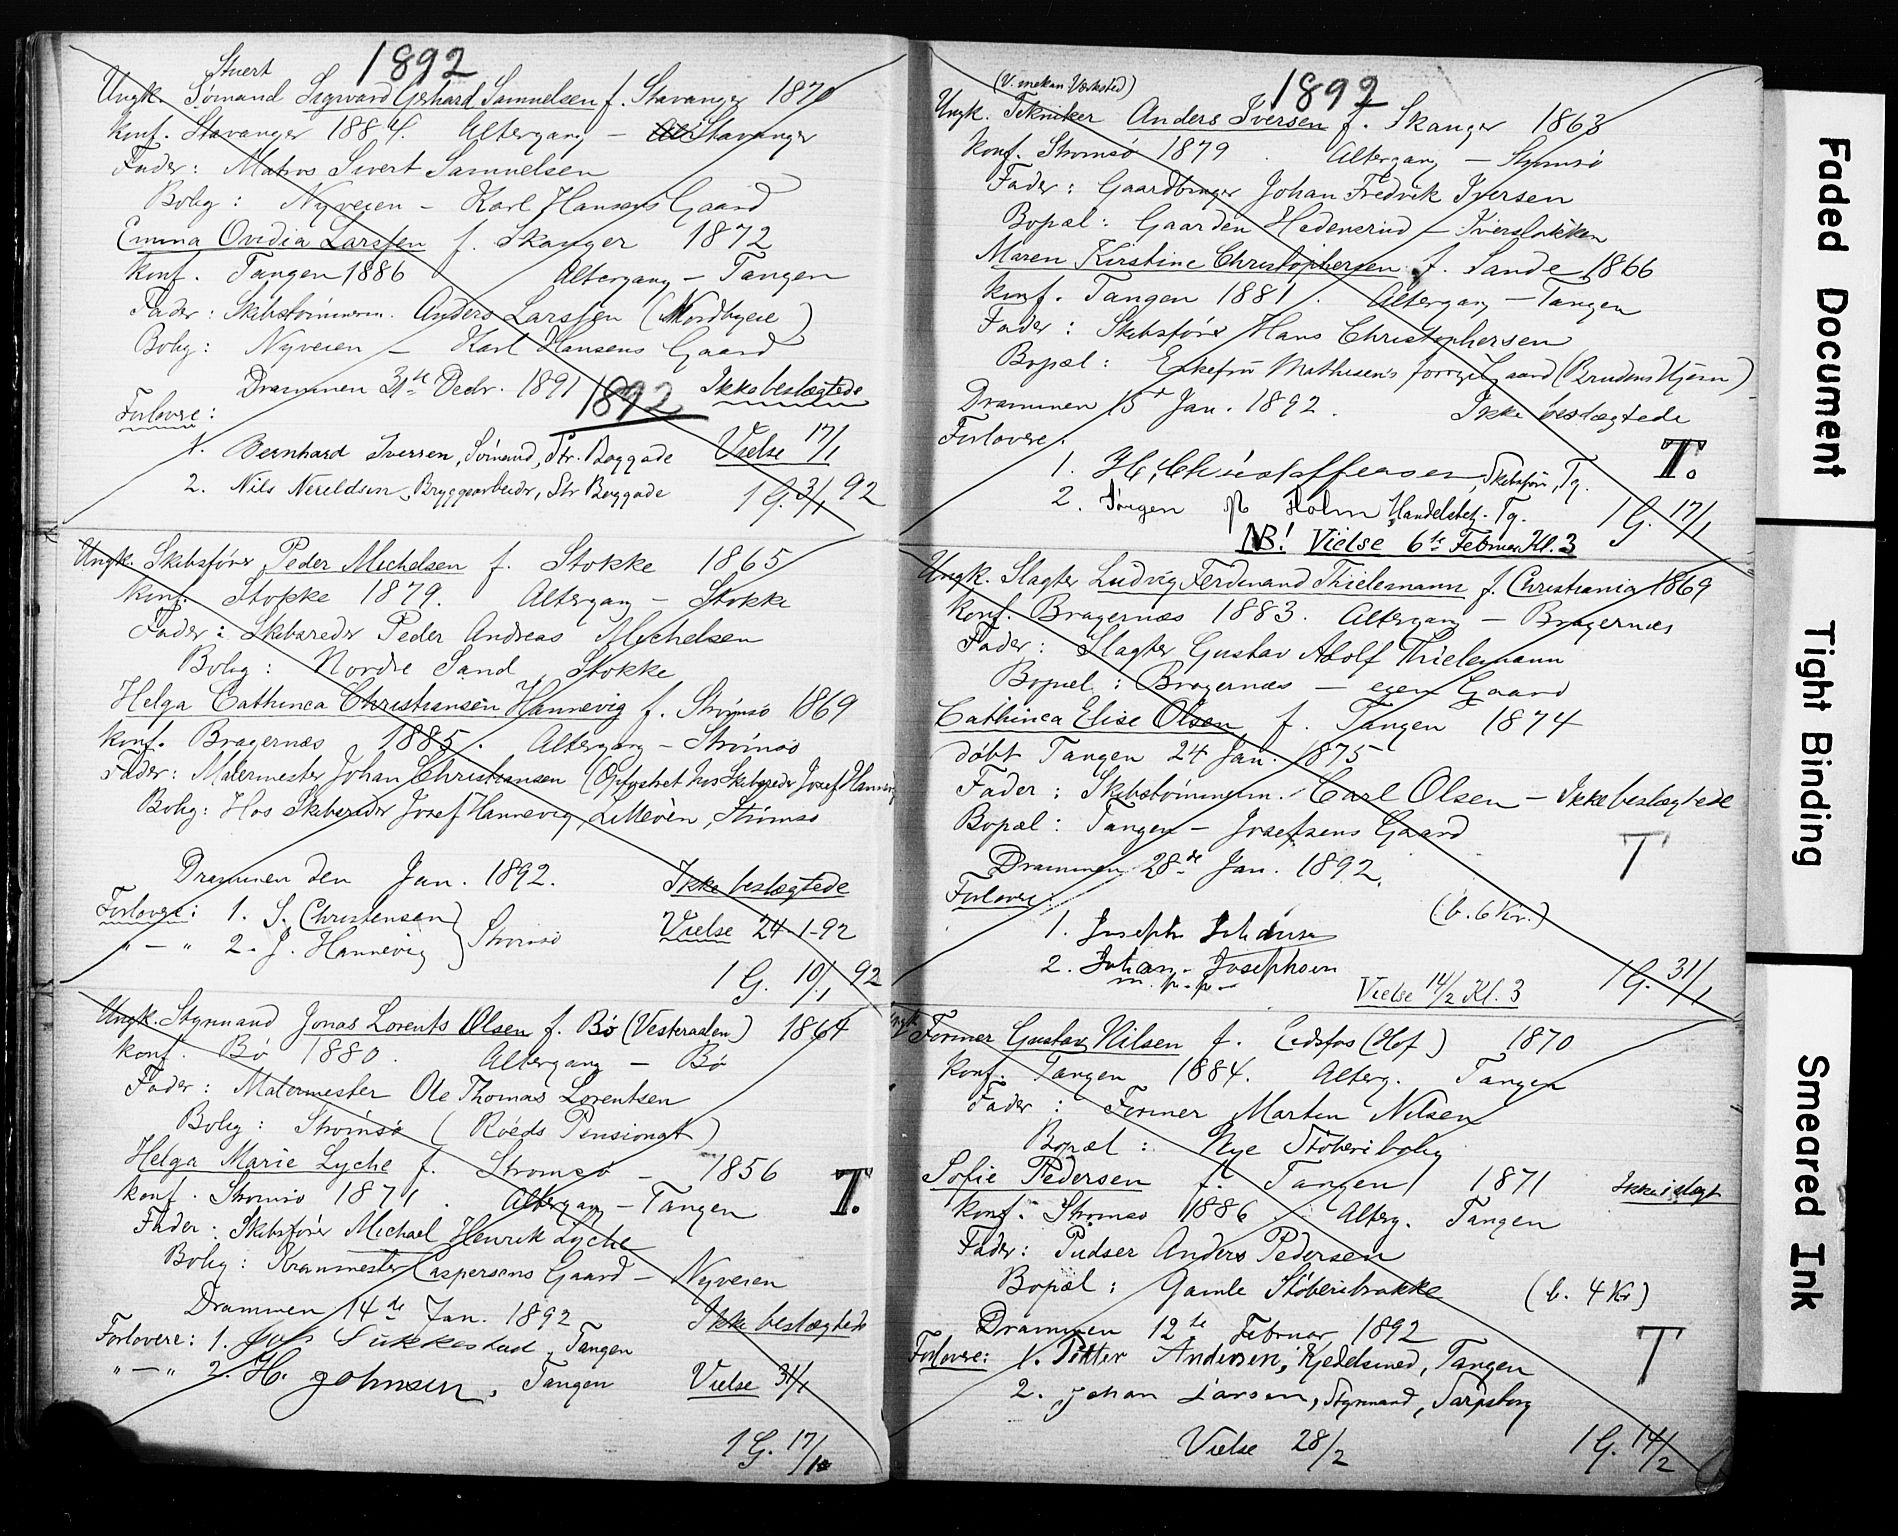 1892
Stuert
Ungk. Sømand Sigward Gerhard Samuelsen f. Stavanger 1870
Konf. Stavanger 1884. Altergang – Stavanger
Fader: Matros Sivert Samuelsen
Bolig: Nyveien – Karl Hansens Gaard
Emma Ovidia Larssen f. Skanger 1872
Konf. Tangen 1886 Altergang – Tangen
Fader: Skibstømmerm. Anders Larssen (Nordbyeie)
Bolig: Nyveien – Karl Hansens Gaard
Drammen 31te Decbr. 1891 Ikke beslægtede
1892
Forlovere:
1. Bernhard Iversen, Sømand, Str. Baggade Vielse 17/1
2. Nils Nereldsen, Bryggearbeider, Str Baggade 1 G. 3/1 92
Ungk. Skibsfører Peder Michelsen f. Stokke 1865
Konf. Stokke 1879. Altergang – Stokke
Fader: Skibsreder Peder Andreas Michelsen
Bolig: Nordre Sand, Stokke
Helga Cathinca Christiansen Hannevig f. Strømsø 1869
Konf. Bragernæs 1885. Altergang – Strømsø
Fader: Malermester Johan Christiansen (Opfostret hos Skibsreder Josef Hannevig
Bolig: Hos Skibsreder Josef Hannevig, Strømsø
Drammen den Jan. 1892. Ikke beslægtede
Forlovere: 1. S. Christensen
" – " 2. J. Hannevig } Strømsø Vielse 24-1-92
1 G. 10/1 92
Ungk. Styrmand Jonas Lorents Olsen f. Bø (Vesteraalen) 1864
Konf. Bø 1880. Altergang – Bø
Fader: Malermester Ole Thomas Lorentsen
Bolig: Strømsø (Røeds Pensionat)
Helga Marie Lyche f. Strømsø – 1856
Konf. Strømsø 1871. Altergang – Tangen T.
Fader: Skibsfører Michael Henrik Lyche
Bolig: Kranmester Caspersens Gaard – Nyveien
Drammen 14de Jan. 1892 Ikke beslægtede
Forlovere: 1. Sukkestad, Tangen
" – " 2. H. Johnsen, Tangen Vielse 31/1
1 G. 17/1
1892
(V. mekan Værksted)
Ungk. Tekniker Anders Iversen f. Skanger 1863
Konf. Strømsø 1879. Altergang – Strømsø
Fader: Gaardbruger Johan Fredrik Iversen
Bopæl: Gaarden Hedenerud – Iversløkken
Maren Kirstine Christophersen f. Sande 1866
Konf. Tangen 1881. Altergang – Tangen
Fader: Skibsfører Hans Christophersen
Bopæl: Enkefru Mathisens forrige Gaard (Brudens Hjem)
Drammen 15de Jan. 1892. Ikke beslægtede
Forlovere:
1. H. Skibsfører, Tg. T.
2. Jørgen Holm Handelsbetj. Tg. 1 G. 17/1
NB! Vielse 6te Februar Kl. 3
Ungk. Slagter Ludvig Ferdinand Thielemann f. Christiania 1869
Konf. Bragernæs 1883. Altergang – Bragernæs
Fader: Slagter Gustav Adolf Thielemann
Bopæl: Bragernæs – egen Gaard
Cathinca Elise Olsen f. Tangen 1874
døbt Tangen 24 Jan. 1875
Fader: Skibstømmerm. Carl Olsen – Ikke beslægtede
Bopæl: Tangen – Josefsens Gaard
T
Drammen 28de Jan. 1892.
Forlovere: (b. 6 Kr.)
1. Joseph Johansen
2. Johan Josephsen
m. p. p. 1 G. 31/1
Vielse 14/2 Kl. 3
Ungk. Former Gustav Nilsen f. Eidsfos (Hof) 1870
Konf. Tangen 1884. Alterg. Tangen
Fader: Former Martin Nilsen
Bopæl: Nye Støberibolig
Sofie Pedersen f. Tangen 1871 Ikke i slægt
Konf. Strømsø 1886. Alterg. Tangen
Fader: Pudser Anders Pedersen
Bopæl: Gamle Støberibrakke (b. 4 Kr)
Drammen 12te Februar 1892
Forlovere: 1. Petter Andersen, Kjedelsmed, Tangen T
2. Johan Larsen, Styrmand, Sarpsborg
Vielse 28/2 1 G. 14/2
Faded Document
Tight Binding
Smeared Ink